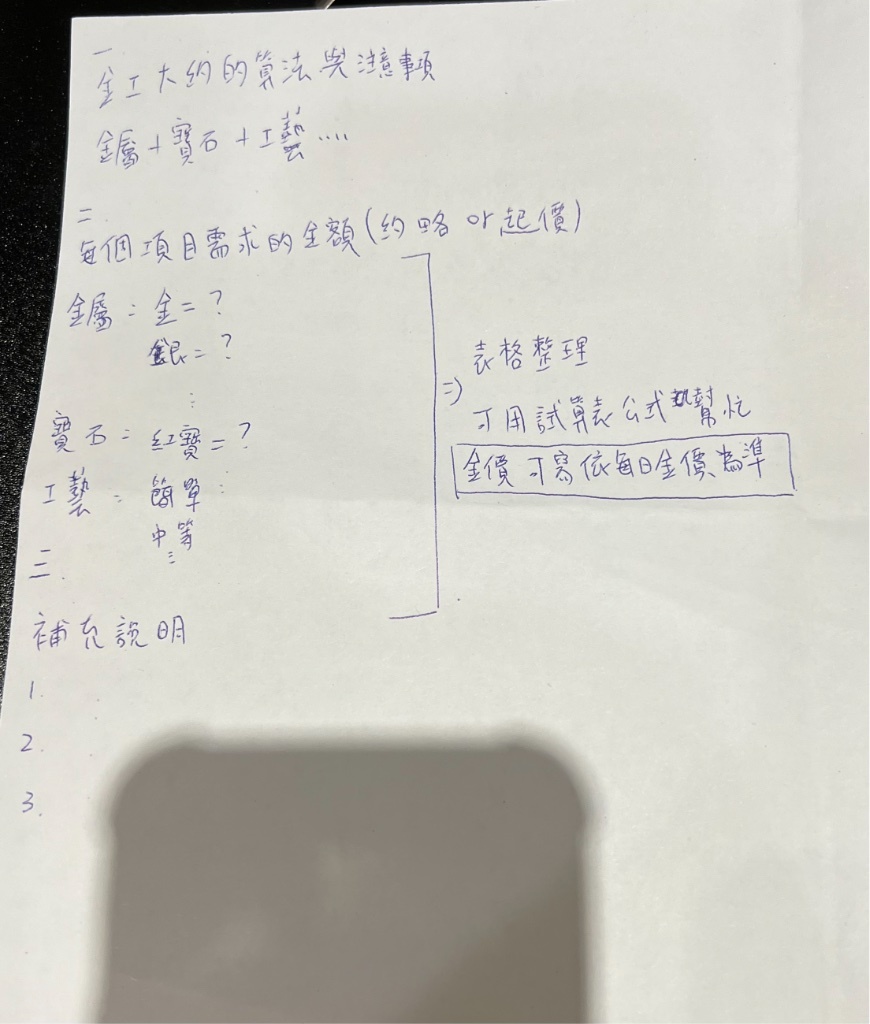 一
金工大約的算法與注意事項
金屬+寶石+工藝....
二.
每個項目需求的金額(約略 or 起價)
金屬:金=?
銀=?
⋮
寶石:紅寶=?
工藝:簡單:
中等
⋮
三.
補充說明
1.
2.
3.
⇒
表格整理
可用試算表公式幫忙
金價可寫依每日金價為準